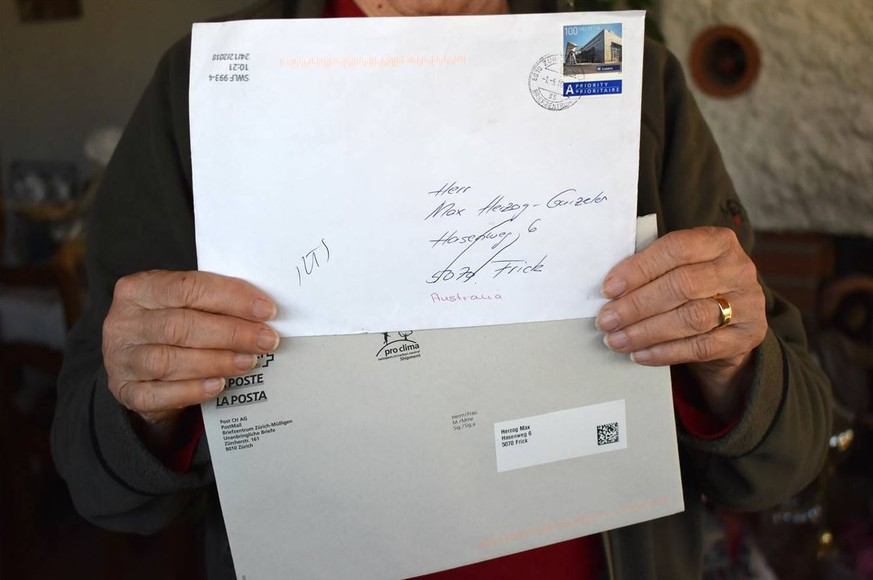 SWLF 993-4
10:21
24/12/2018
100 HELVETIA
A PRIORITY
PRIORITAIRE
Herr
Max Herzog-Guizeler
Hasenweg 6
5079 Frick
Australia
pro clima
Shipment
LA POSTE
LA POSTA
Post CH AG
PostMail
Briefzentrum Zürich-Mülligen
Unanbringliche Briefe
Zürcherstr. 161
8010 Zürich
Herrn/Frau
M./Mme
Sig./Sig.a
Herzog Max
Hasenweg 6
5070 Frick